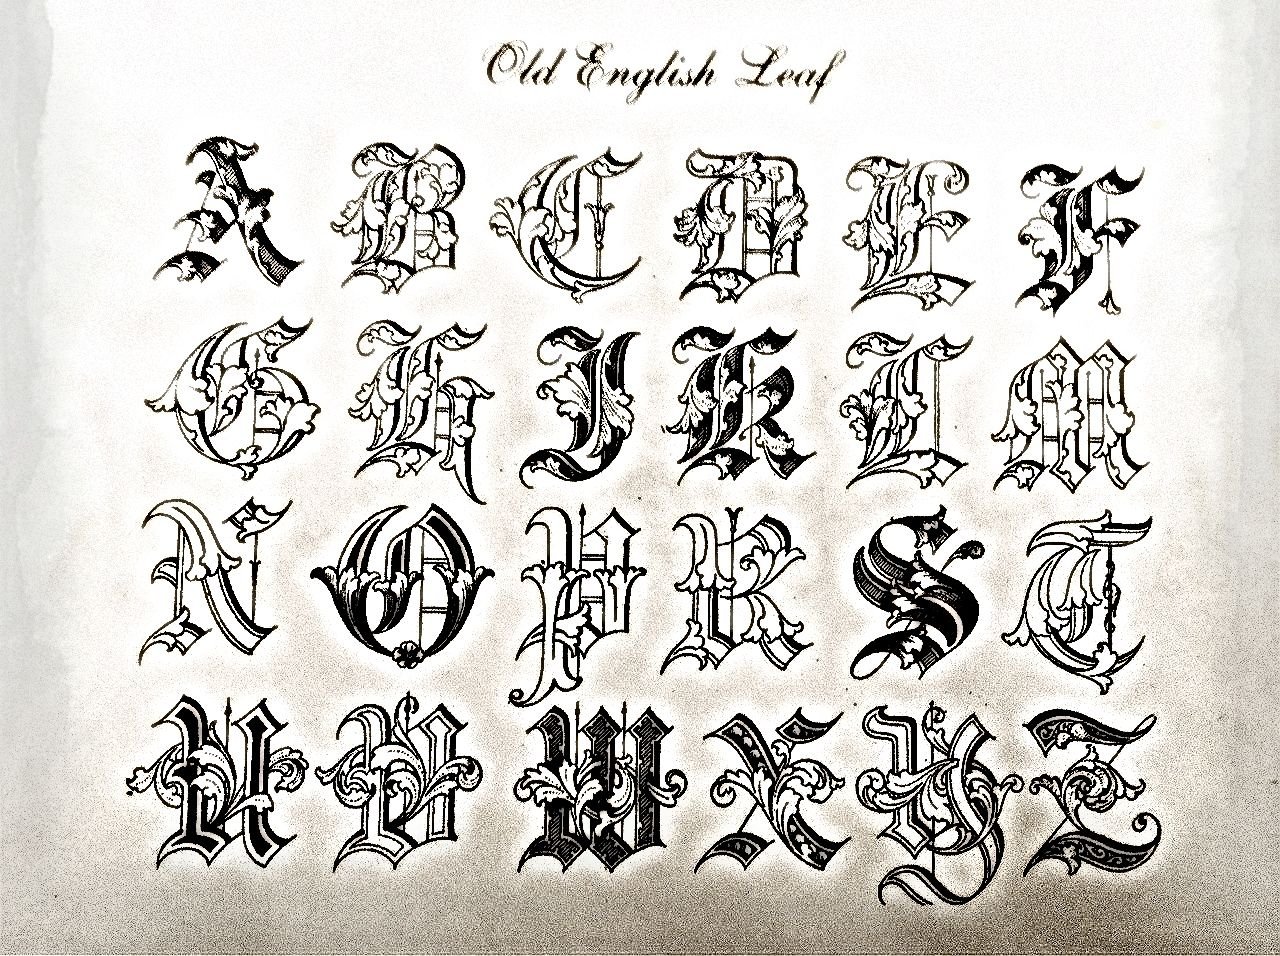 Old English Leaf
A B C D E F
G H J K L M
N O P R S T
U V W X Y Z